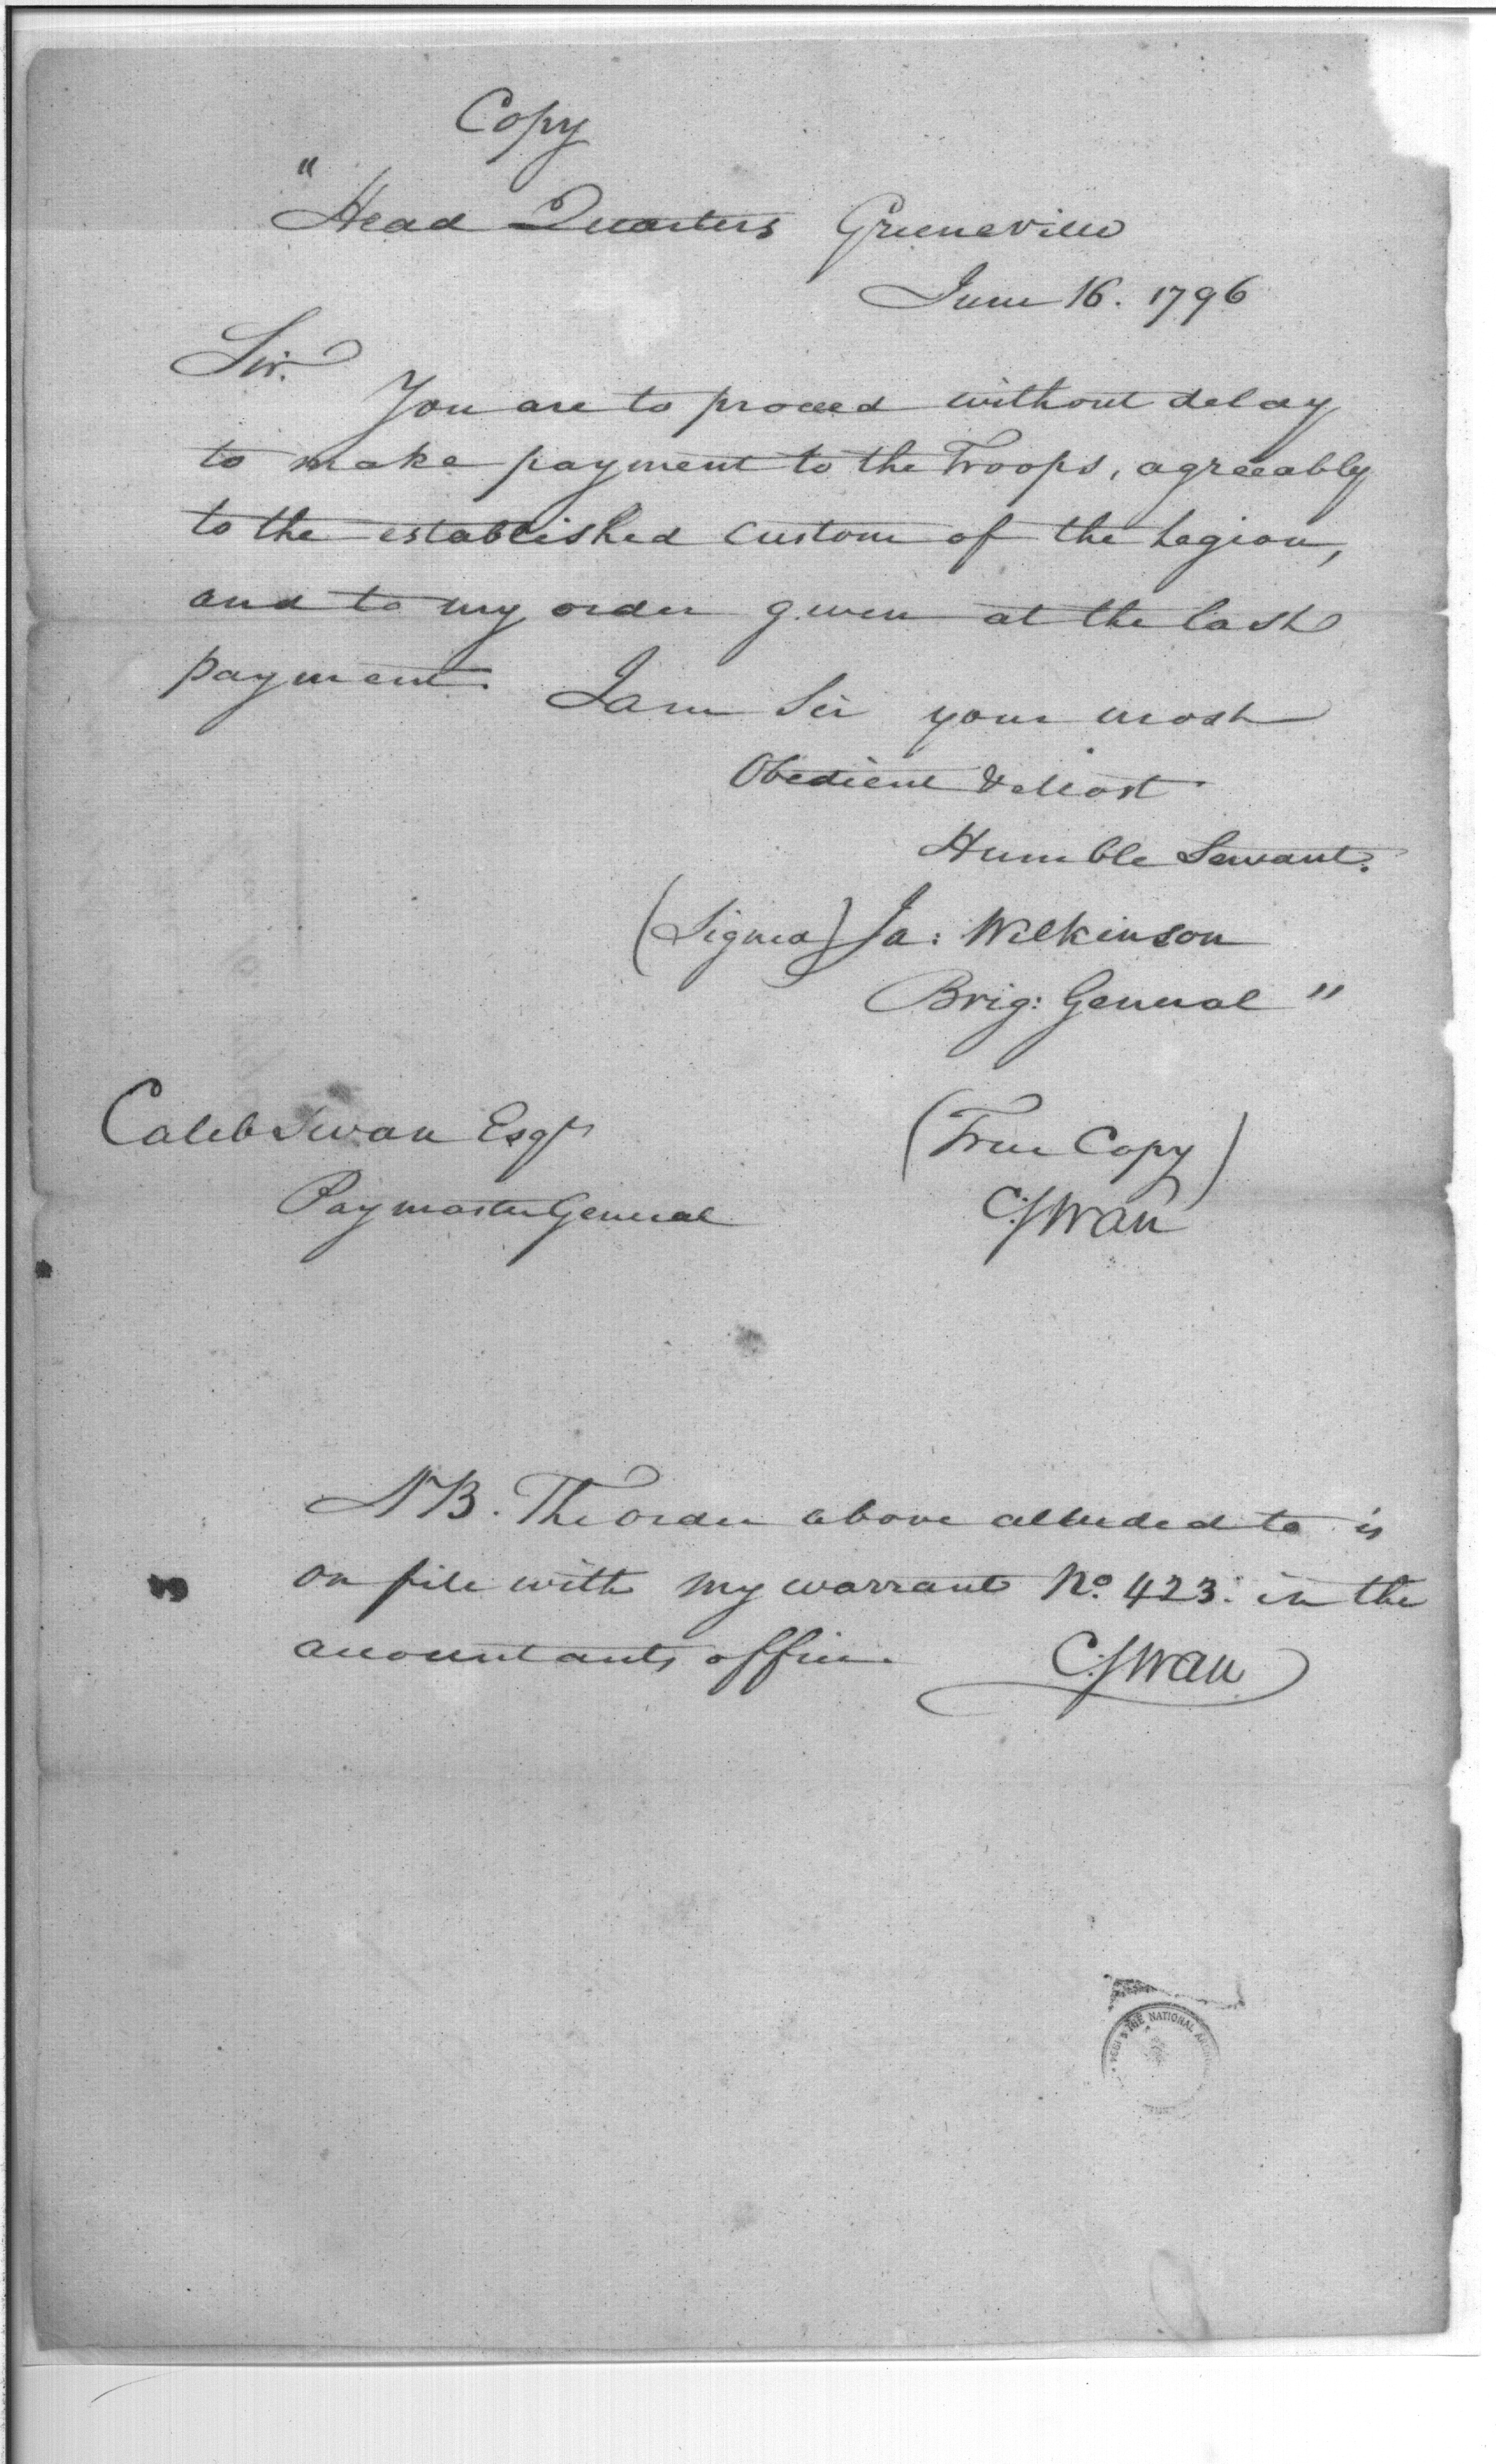 Copy
"Head Quarters Greeneville
June 16. 1796
Sir.
You are to proceed without delay
to make payment to the Troops, agreeably
to the established custom of the Legion,
and to my order given at the last
payment. I am Sir your most
Obedient & Most
Humble Servant.
(Signed) Ja: Wilkinson
Brig: General "
Caleb Swan Esqr
Paymaster General
(True Copy)
C:Swan
NB. The order above alluded to is
on file with my warrant No. 423. in the
accountants office.
C:Swan
THE NATIONAL